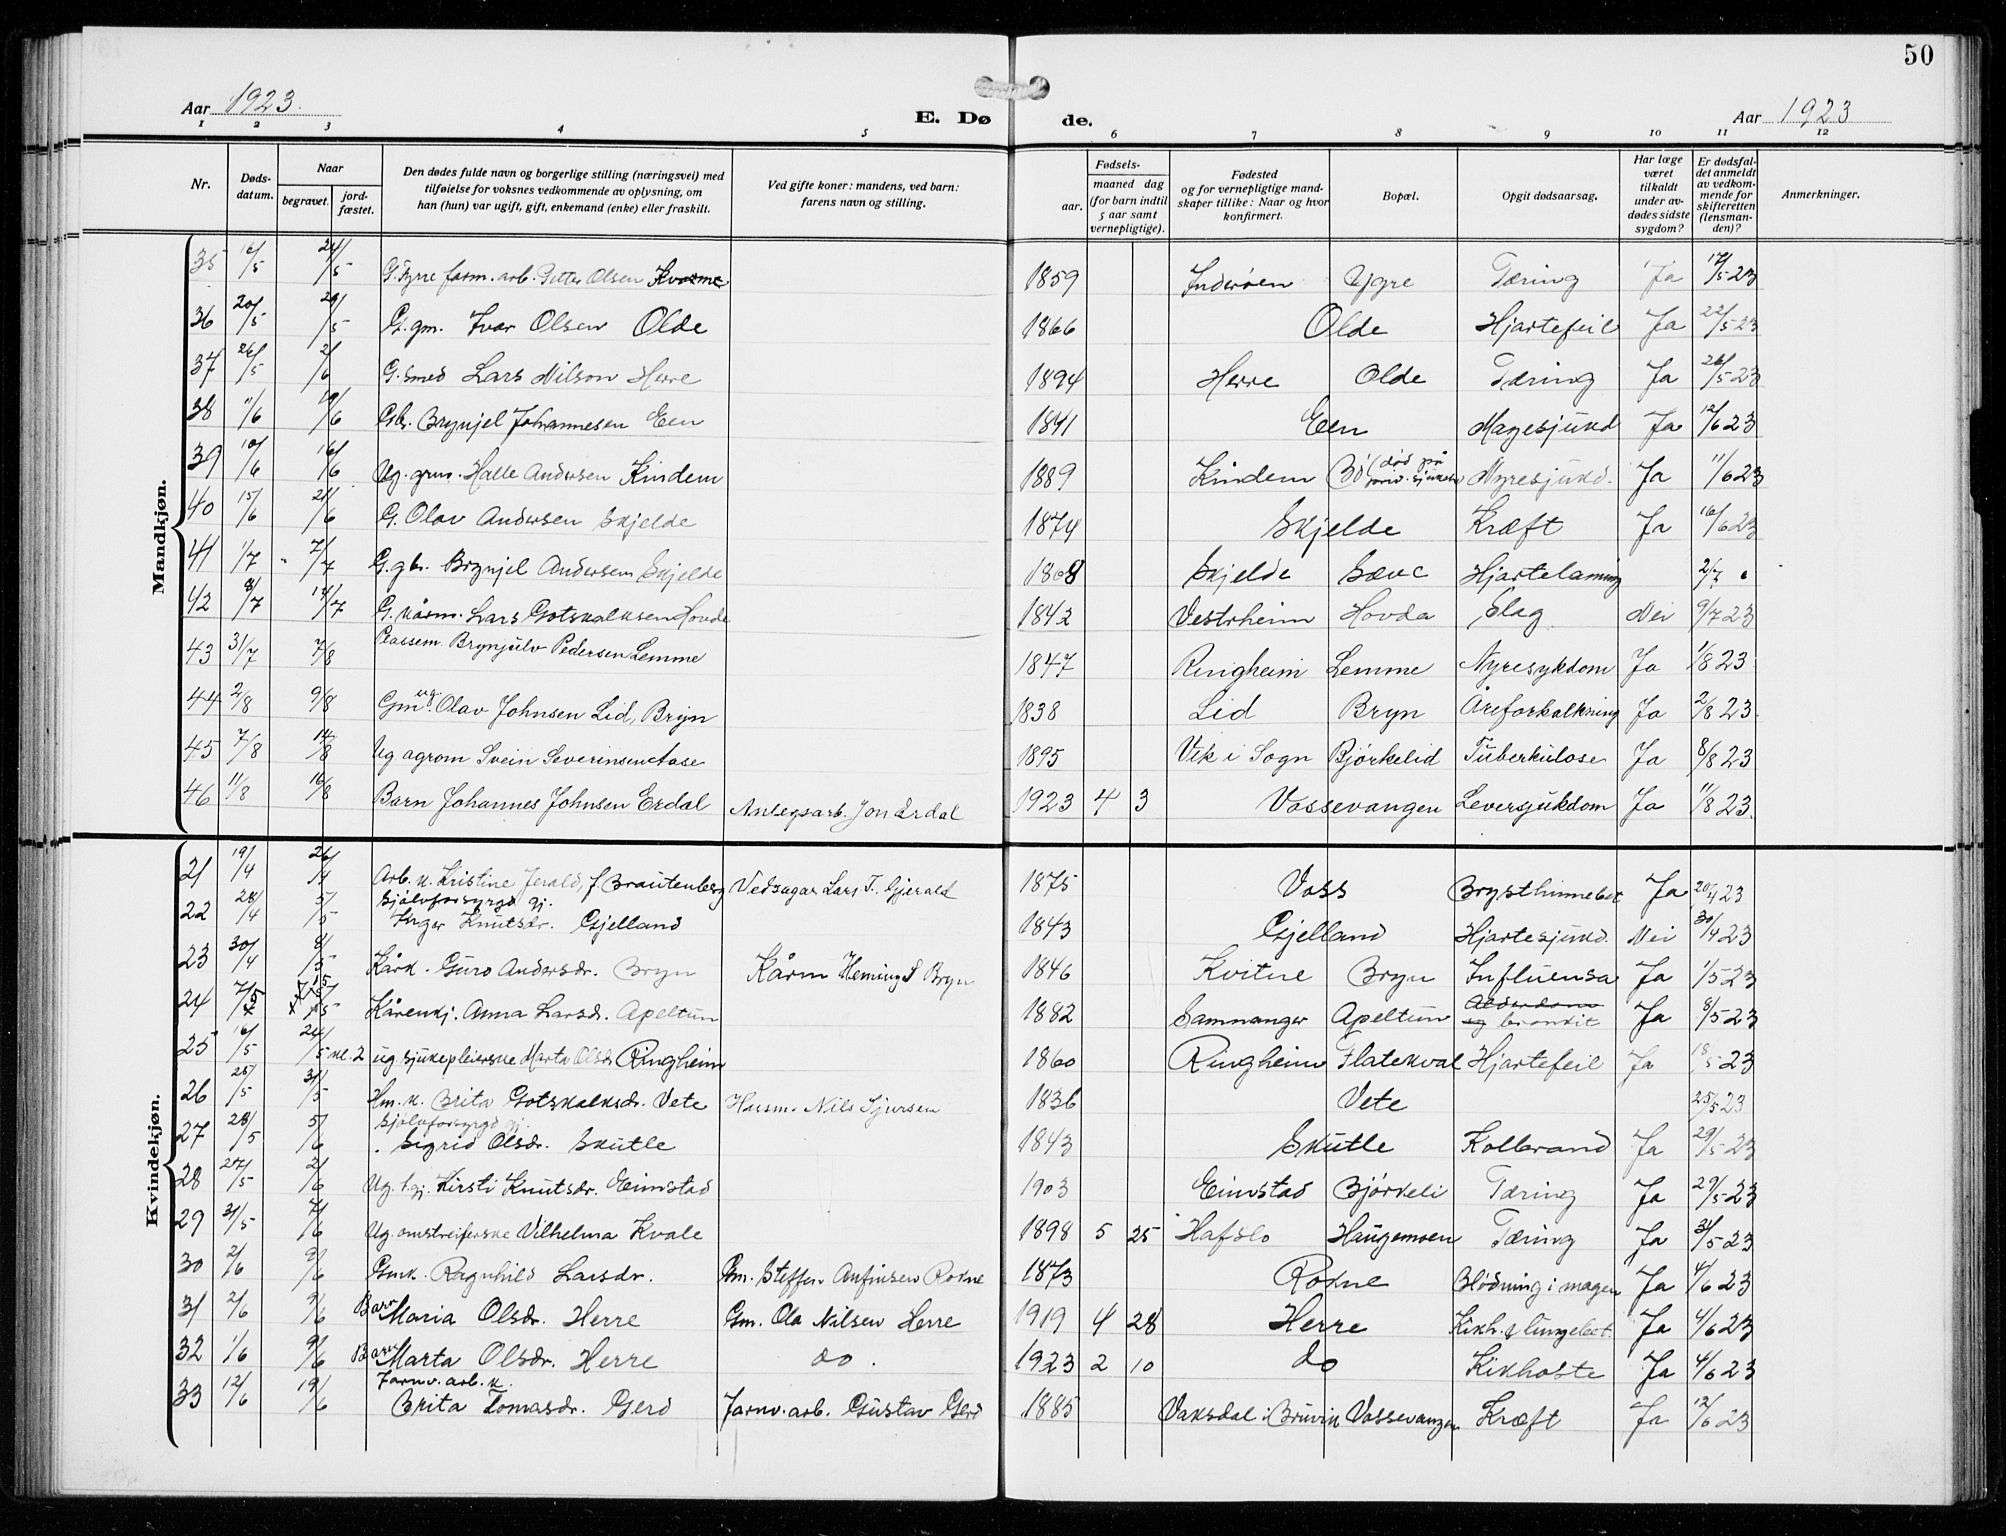 50
Aar 1923. E. Dø de. Aar 1923
1 2 3 4 5 6 7 8 9 10 11 12
Nr. Døds-datum. Naar begravet. jord-fæstet. Den dødes fulde navn og borgerlige stilling (næringsvei) med tilføielse for voksnes vedkommende av oplysning, om han (hun) var ugift, gift, enkemand (enke) eller fraskilt. Ved gifte koner: mandens, ved barn: farens navn og stilling. Fødsels- aar. maaned dag (for barn indtil 5 aar samt vernepligtige). Fødested og for vernepligtige mandskaper tillike: Naar og hvor konfirmert. Bopæl. Opgit dødsaarsag. Har læge været tilkaldt under avdødes sidste sygdom? Er dødsfaldet anmeldt av vedkommende for skifteretten (lensmanden)? Anmerkninger.
Mandkjøn.
35 16/5 24/5 G. Fyrre farm. arb. Petter Olsen Kvarme 1859 Inderøen Ygre Tæring Ja 17/5 23
36 20/5 29/5 G. gm. Ivar Olsen Olde 1866 Olde Hjartefeil Ja 22/5 23
37 26/5 2/6 G. smed Lars Nilson Herre 1894 Herre Olde Tæring Ja 26/5 23
38 11/6 19/6 Gbr. Brynjel Johannesen Een 1841 Een Magesjukd Ja 12/6 23
39 10/6 16/6 Ug. grm. Halle Andersen Kindem 1889 Kindem Bø (død på priv. sjukeh) Nyresjukd. Ja 11/6 23
40 15/6 21/6 G. Olav Andersen Skjelde 1874 Skjelde Kræft Ja 16/6 23
41 1/7 7/7 G. gbr. Brynjel Andersen Skjelde 1868 Skjelde Sæve Hjartelaming 2/7
42 8/7 14/7 G. kårm. Lars Gotskalksen Hovda 1842 Vestrheim Hovda Slag Nei 9/7 23
43 31/7 7/8 Plassem. Brynjulv Pedersen Lemme 1847 Ringheim Lemme Nyresykdom Ja 1/8 23
44 2/8 9/8 Gm ug. Olav Johnsen Lid, Bryn 1838 Lid Bryn Åreforkalkning Ja 2/8 23.
45 7/8 14/8 Ug agrom Svein Severinsen Aase 1895 Vik i Sogn Bjørkelid Tuberkulose Ja 8/8 23
46 11/8 16/8 Barn Johannes Johnsen Erdal Anlegsarb. Jon Erdal 1923 4 3 Vossevangen Leversjukdom Ja 11/8 23.
Kvindekjøn.
21 19/4 26/4 Arb. k. Kristine Jerald, f Brautenberg Vedsagar Lars T. Gjerald 1875 Voss Brysthinnebet Ja 20/4 23
22 28/4 5/5 Sjølvforsyrgd gj. Inger Knutsdr. Gjelland 1843 Gjelland Hjartesjukd. Nei 30/4 23
23 30/4 8/5 Kårk. Guro Andersdr. Bryn Kårm Heming Bryn 1846 Kvitne Bryn Influensa Ja 1/5 23
24 7/5 15/5 Kårenkj. Anna Larsdr. Apeltun 1882 Samnanger Apeltun Alderdom og bronkit Ja 8/5 23
25 16/5 24/5 kl. 2 ug. sjukepleierske Marta Olsdr Ringheim 1860 Ringheim Flatekval Hjartefeil Ja 18/5 23
26 25/5 31/5 Hm. k. Brita Gotskalksdr. Vete Husm. Nils Sjursen 1836 Vete 25/5 23
27 28/5 5/6 Sjølvforsyrgd gj. Sigrid Olsdr. Skutle 1843 Skutle Kolbrand Ja 29/5 23
28 27/5 2/6 Ug. t. gj. Kirsti Knutsdr. Eimstad 1903 Eimstad Bjørkeli Tæring Ja 29/5 23
29 31/5 7/6 Ug. omstreiferske Vilhelma Kvale 1898 5 25 Hafslo Haugamoen Tæring Ja 31/5 23
30 2/6 9/6 Gmk. Ragnhild Larsdr. Gm. Steffen Anfinsen Rokne 1873 Rokne Blødning i magen Ja 4/6 23
31 2/6 9/6 Barn Maria Olsdr. Herre Gm. Ola Nilsen Herre 1919 4 28 Herre Kikh. & lungebet. Ja 4/6 23
32 1/6 9/6 Barn Marta Olsdr. Herre do. 1923 2 10 do Kikhoste Ja 4/6 23
33 12/6 19/6 Jarnv. arb. k. Brita Tomasdr. Gerd Jarnv. arb. Gustav Gerd 1885 Vaksdal i Bruvik Vossevangen Kræft Ja 12/6 23